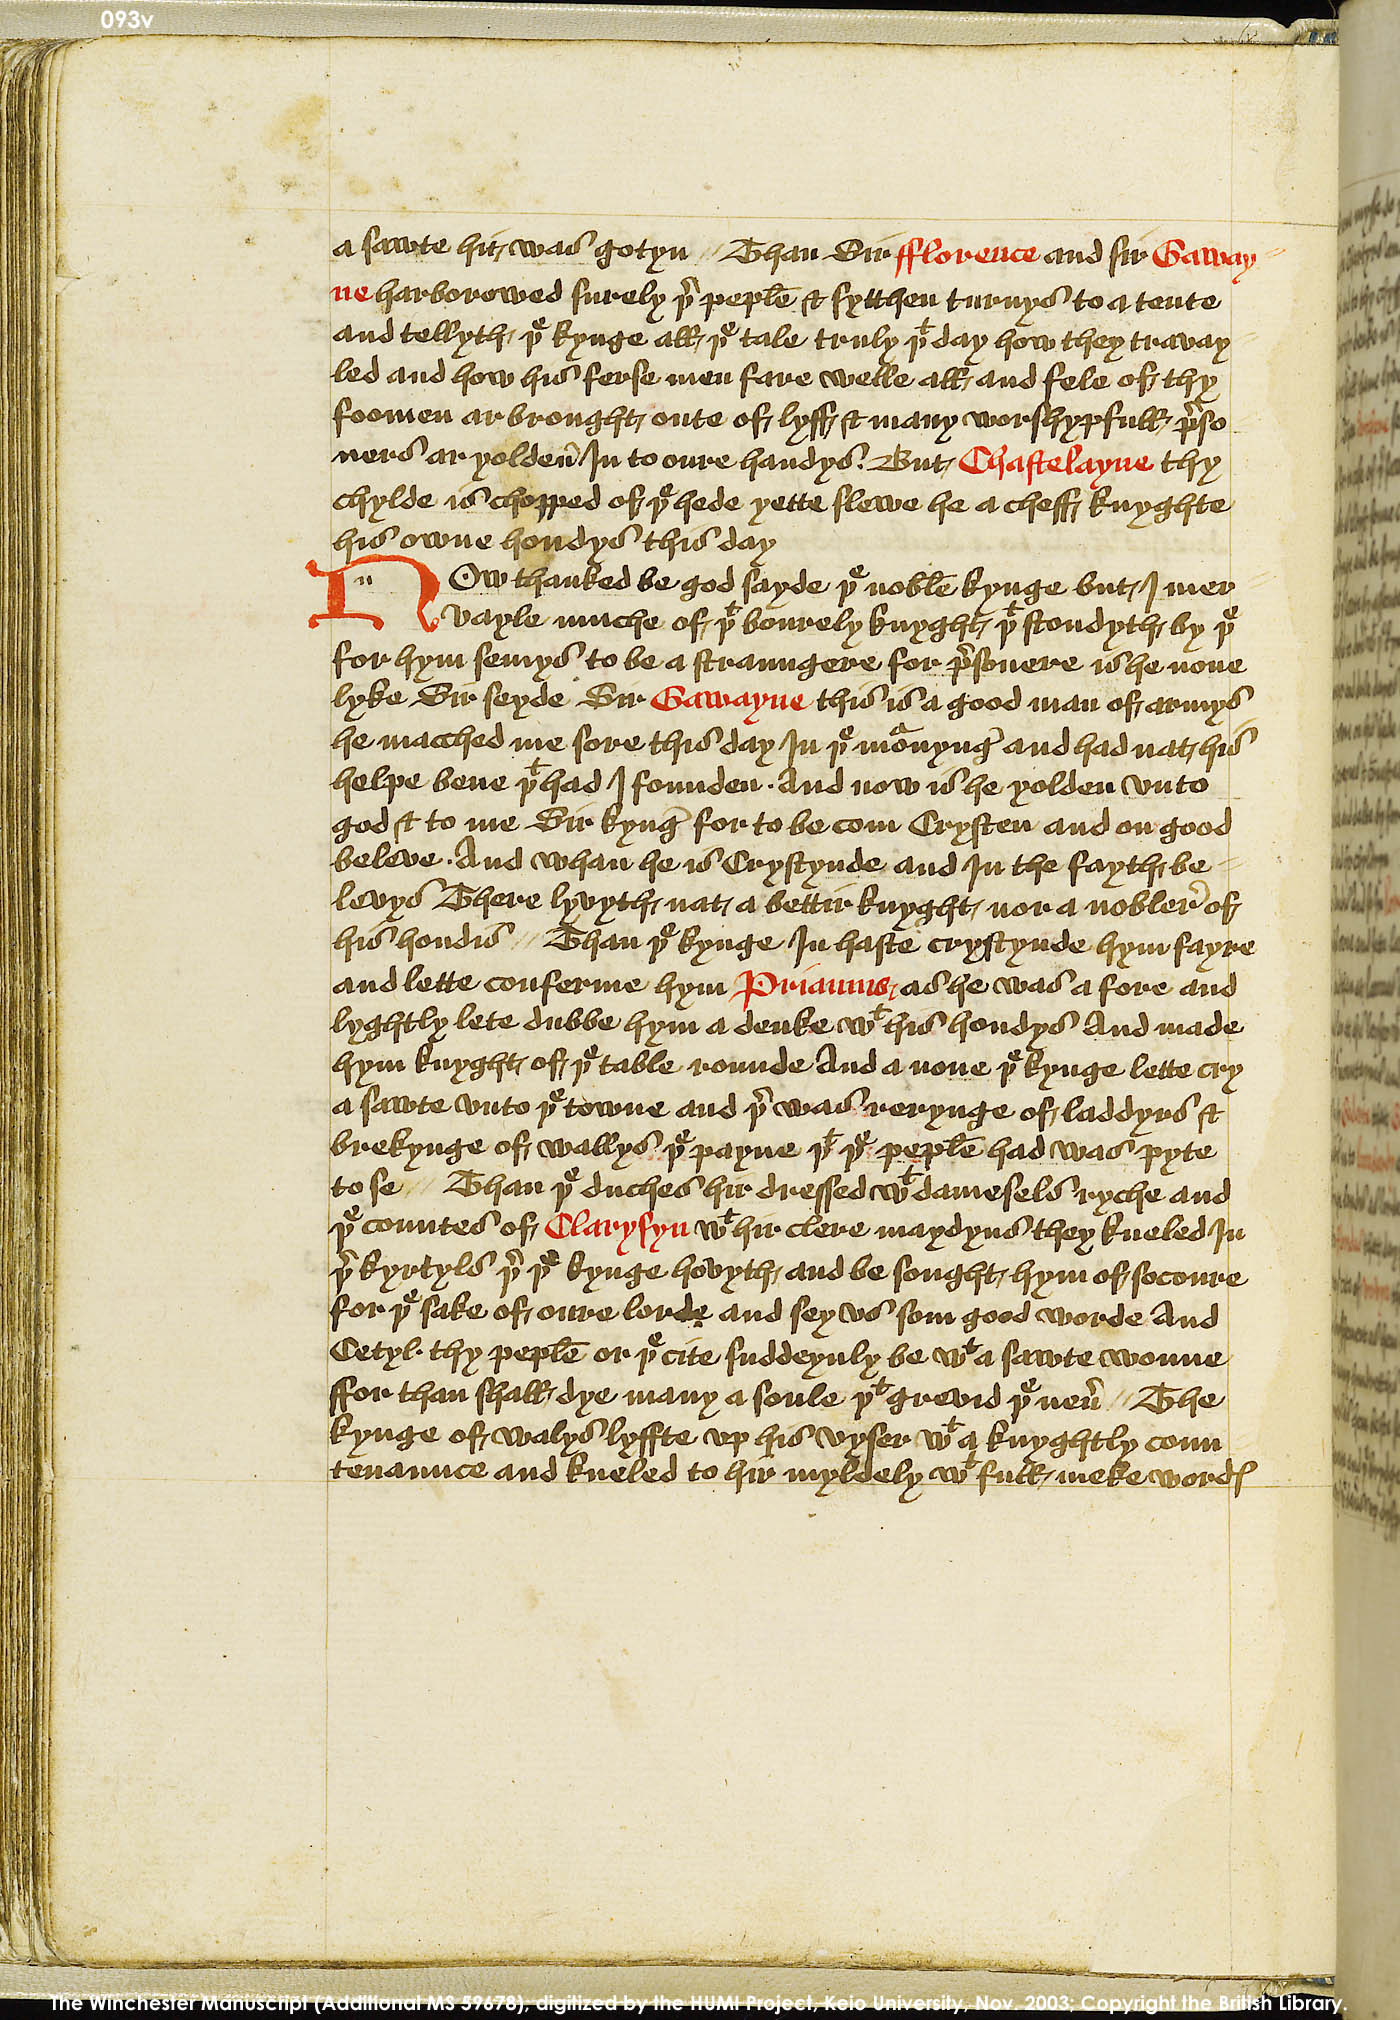 093v
a sawte hit was gotyn // Than Sir fflorence and sir Gaway=
ne harborowed surely þr̃ peplẽ & sytthen turnys to a tente
and tellyth þe kynge all þe tale truly þt day how they travay=
led and how his ferse men fare welle all and fele of thy
foomen ar brought oute of lyff & many worshypfull pr̃so
ners ar yolden̄ In to oure handys. But Chastelayne thy
chylde is chopped of þe hede yette slewe he a cheff knyghte
his owne hondys this day
Now thanked be god sayde þe noblẽ kynge but I mer=
vayle muche of þt bourely knyght þt stondyth by þe
for hym semys to be a straungere for pr̃sonere is he none
lyke Sir seyde Sir Gawayne this is a good man of armys
he macched me sore this day In þe mornyng̃ and had nat his
helpe bene þt had I founden. And now is he yolden vnto
god & to me Sir kyng̃ for to be com Crysten and on good
beleve. And whan he is Crystynde and In the fayth be=
levys There lyvyth nat a bettir knyght nor a nobler̃ of
his hondis // Than þe kynge In haste crystynde hym fayre
and lette conferme hym Priamus as he was a fore and
lyghtly lete dubbe hym a deuke wt his hondys And made
hym knyght of þe table rounde And a none þe kynge lette cry
a sawte vnto þe towne and þr̃ was rerynge of laddyrs &
brekynge of wallys þe payne þt þe peplẽ had was pyte
to se // Than þe duches hir dressed wt damesels ryche and
þe countes of Clarysyn wt hir clere maydyns they kneled In
þr̃ kyrtyls þr̃ þe kynge hovyth and be sought hym of socoure
for þe sake of oure lorde and sey vs som good worde And
Cetyl thy peplẽ or þe cite suddeynly be wt a sawte wonne
ffor than shall dye many a soule þt grevid þe ner̃ // The
kynge of walys lyffte vp his vyser wt a knyghtly coun
tenaunce and kneled to hir myldely wt full meke wordꝭ
The Winchester Manuscript (Additional MS 59678), digitized by the HUMI Project, Keio University, Nov. 2003; Copyright the British Library.